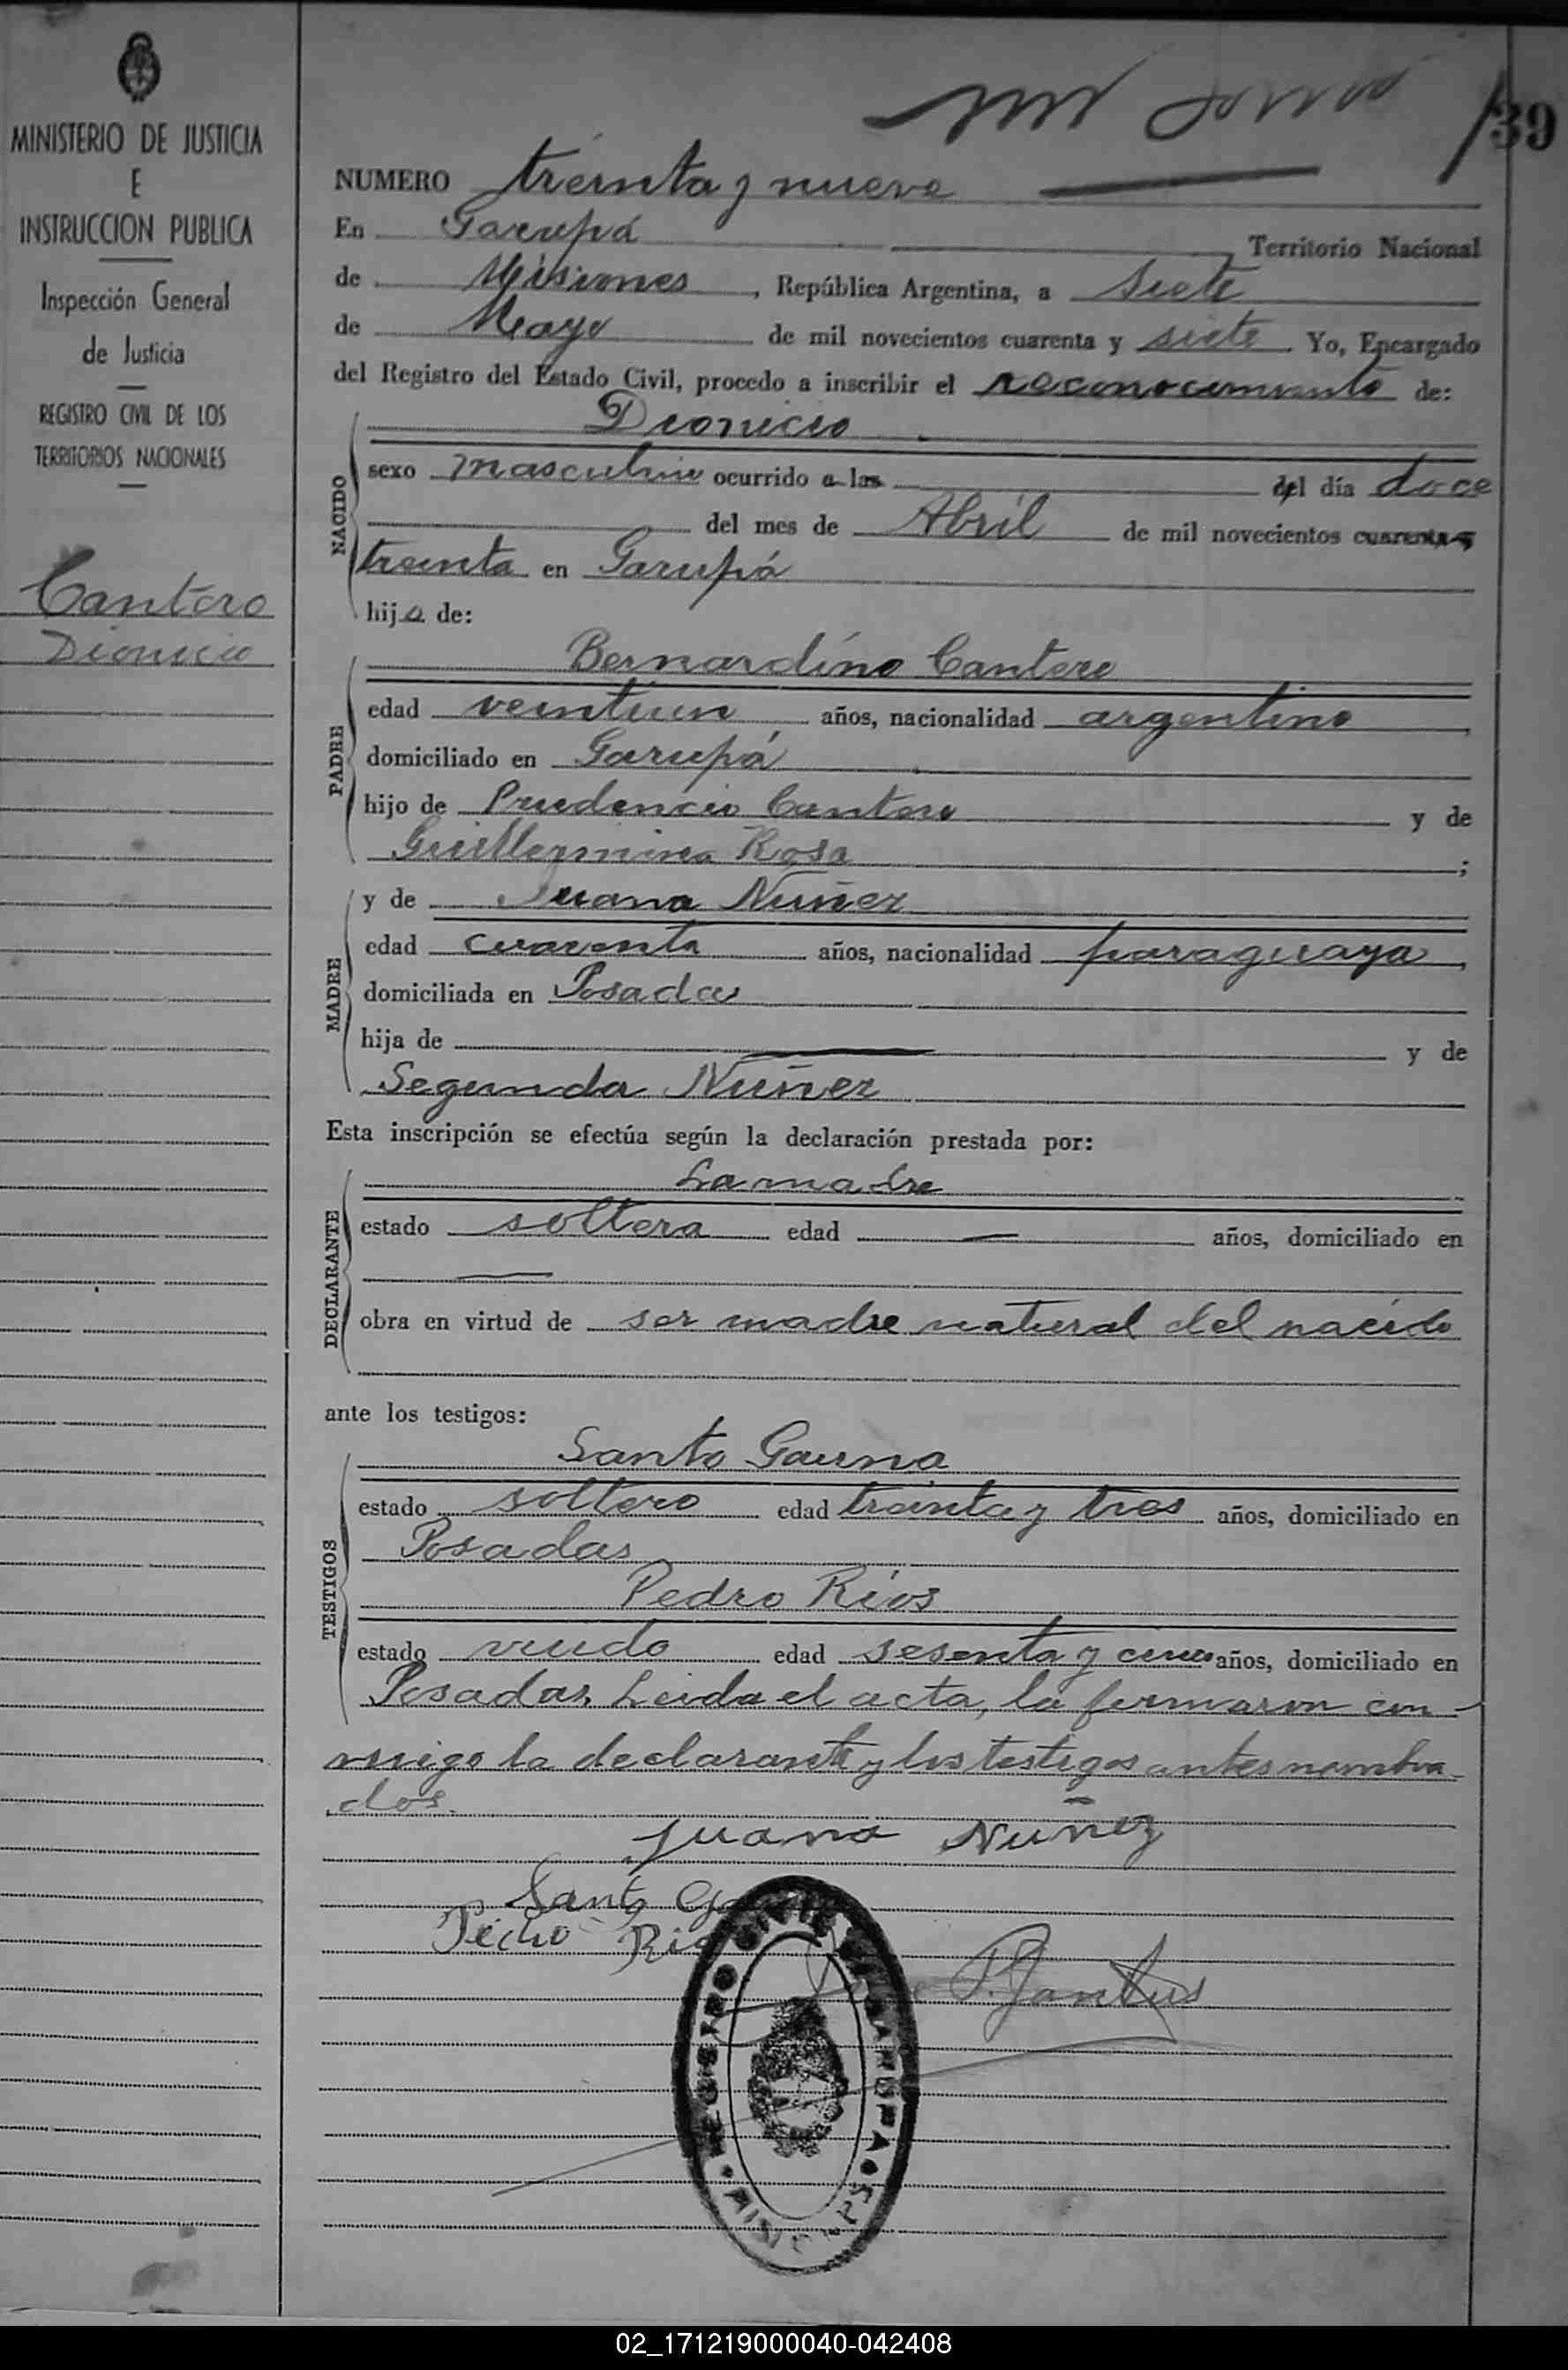 MINISTERIO DE JUSTICIA
E
INSTRUCCION PUBLICA
Inspección General
de Justicia
REGISTRO CIVIL DE LOS
TERRITORIOS NACIONALES
Cantero
Dionicio
39
NUMERO treinta y nueve
En Garupá Territorio Nacional
de Misiones, República Argentina, a siete
de Mayo de mil novecientos cuarenta y siete. Yo, Encargado
del Registro del Estado Civil, procedo a inscribir el reconocimiento de:
NACIDO
Dionicio
sexo masculino ocurrido a las del día doce
del mes de Abril de mil novecientos cuarenta y
treinta en Garupá
hijo de:
PADRE
Bernardino Cantero
edad veintiun años, nacionalidad argentino,
domiciliado en Garupá
hijo de Prudencio Cantero y de
Guillermina Rosa;
MADRE
y de Juana Nuñez
edad cuarenta años, nacionalidad paraguaya,
domiciliada en Posadas
hija de y de
Segunda Nuñez
Esta inscripción se efectúa según la declaración prestada por:
DECLARANTE
La madre
estado soltera edad — años, domiciliado en
—
obra en virtud de ser madre natural del nacido
ante los testigos:
TESTIGOS
Santo Gauna
estado soltero edad treinta y tres años, domiciliado en
Posadas
Pedro Ríos
estado viudo edad sesenta y cinco años, domiciliado en
Posadas. Leida el acta, la firmaron con-
migo la declarante y los testigos antes nombra-
dos.
Juana Nuñez
Santo
REGISTRO CIVIL DE GARUPA
MISIONES
02_171219000040-042408